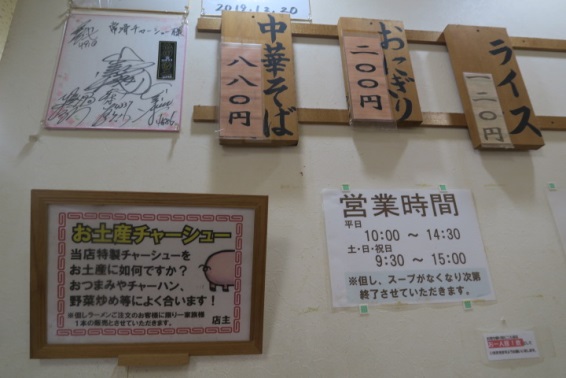 2019.12.20
中華そば
八八〇円
おにぎり
二〇〇円
ライス
一二〇円
お土産チャーシュー
当店特製チャーシューを
お土産に如何ですか?
おつまみやチャーハン、
野菜炒め等によく合います!
※但しラーメンご注文のお客様に限り一家族様
1本の販売とさせていただきます。
店主
営業時間
平日
10:00 ~ 14:30
土・日・祝日
9:30 ~ 15:00
※但し、スープがなくなり次第
終了させていただきます。